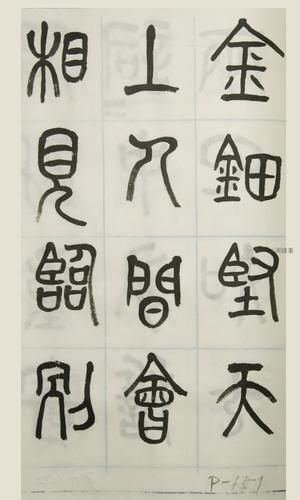 金鈿堅天
上人間會
相見臨別
P-151